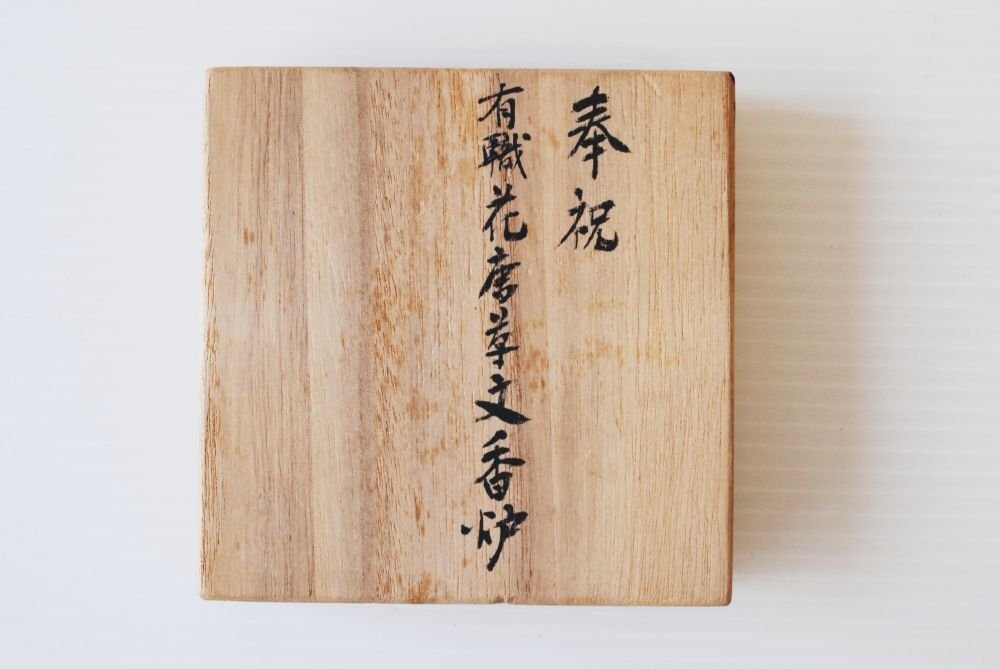 奉祝
有職花唐草文香炉